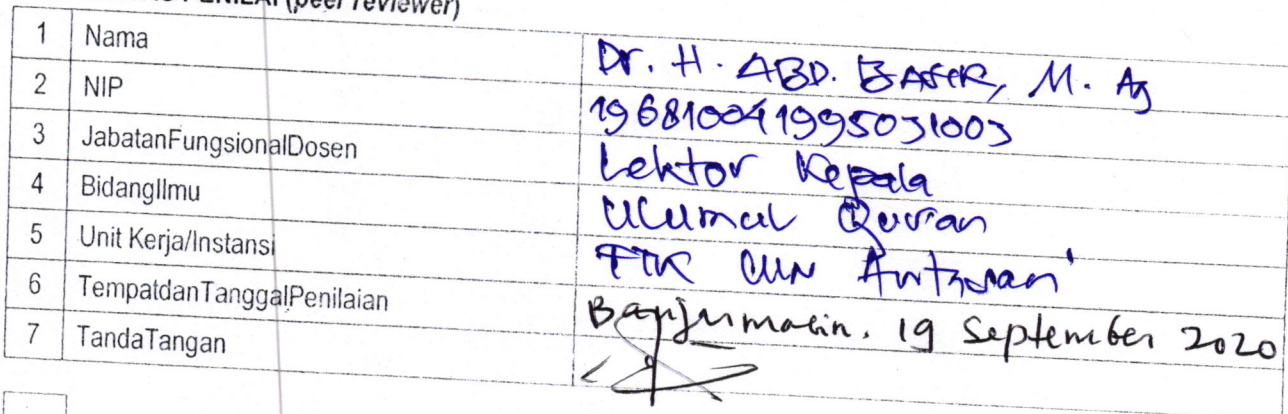 PENILAI (peer reviewer)
1 Nama Dr. H. ABD. BASIR, M. Ag
2 NIP 196810041995031003
3 JabatanFungsionalDosen Lektor Kepala
4 BidangIlmu Ulumul Qur'an
5 Unit Kerja/Instansi FTK UIN Antasari
6 TempatdanTanggalPenilaian Banjarmasin, 19 September 2020
7 TandaTangan